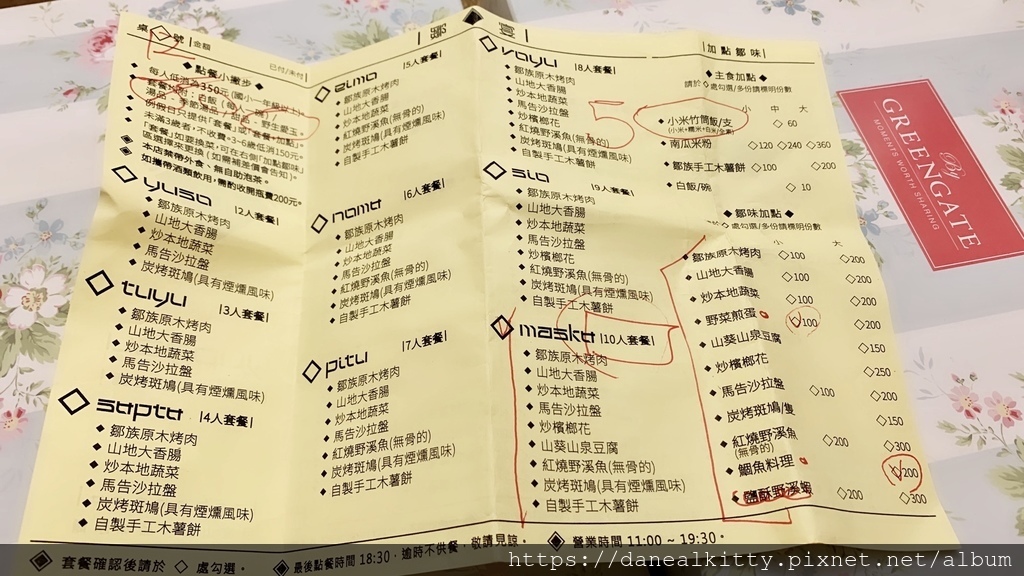 桌 號 |金額
已付/未付
◆ 點餐小撇步 ◆
◆ 每人低消為350元(國小一年級以上)
套餐以附：白飯（每人一碗）/
湯品：季節湯品/甜品：野生愛玉
◆ 例假日只提供「套餐」或「套餐+加點」
◆ 未滿3歲者，不收費。3~6歲低消150元。
◈ 「套餐」如要換菜，可在右側「加點鄒味」
區選擇來更換(如需補差價會告知)。
◈ 本店禁帶外食、無自助泡茶。
如攜帶酒類飲用，需酌收開瓶費200元*
yuso |2人套餐|
◆ 鄒族原木烤肉
◆ 山地大香腸
◆ 炒本地蔬菜
◆ 馬告沙拉盤
◆ 炭烤斑鳩(具有煙燻風味)
tuyu |3人套餐|
◆ 鄒族原木烤肉
◆ 山地大香腸
◆ 炒本地蔬菜
◆ 馬告沙拉盤
◆ 炭烤斑鳩(具有煙燻風味)
sopto |4人套餐|
◆ 鄒族原木烤肉
◆ 山地大香腸
◆ 炒本地蔬菜
◆ 馬告沙拉盤
◆ 炭烤斑鳩(具有煙燻風味)
◆ 自製手工木薯餅
eimo |5人套餐|
◆ 鄒族原木烤肉
◆ 山地大香腸
◆ 炒本地蔬菜
◆ 馬告沙拉盤
◆ 紅燒野溪魚(無骨的)
◆ 炭烤斑鳩(具有煙燻風味)
◆ 自製手工木薯餅
nomo |6人套餐|
◆ 鄒族原木烤肉
◆ 山地大香腸
◆ 炒本地蔬菜
◆ 馬告沙拉盤
◆ 紅燒野溪魚(無骨的)
◆ 炭烤斑鳩(具有煙燻風味)
◆ 自製手工木薯餅
pitu |7人套餐|
◆ 鄒族原木烤肉
◆ 山地大香腸
◆ 炒本地蔬菜
◆ 馬告沙拉盤
◆ 紅燒野溪魚(無骨的)
◆ 炭烤斑鳩(具有煙燻風味)
◆ 自製手工木薯餅
voyu |8人套餐|
◆ 鄒族原木烤肉
◆ 山地大香腸
◆ 炒本地蔬菜
◆ 馬告沙拉盤
◆ 炒檳榔花
◆ 紅燒野溪魚(無骨的)
◆ 炭烤斑鳩(具有煙燻風味)
◆ 自製手工木薯餅
5
sio |9人套餐|
◆ 鄒族原木烤肉
◆ 山地大香腸
◆ 炒本地蔬菜
◆ 馬告沙拉盤
◆ 炒檳榔花
◆ 紅燒野溪魚(無骨的)
◆ 炭烤斑鳩(具有煙燻風味)
◆ 自製手工木薯餅
masko |10人套餐|
◆ 鄒族原木烤肉
◆ 山地大香腸
◆ 炒本地蔬菜
◆ 馬告沙拉盤
◆ 炒檳榔花
◆ 山葵山泉豆腐
◆ 紅燒野溪魚(無骨的)
◆ 炭烤斑鳩(具有煙燻風味)
◆ 自製手工木薯餅
|加點鄒味|
◆ 主食加點 ◆
請於◇處勾選/多份請標明份數
小 中 大
◆ 小米竹筒飯/支 ◇ 60
(小米+糯米+白米/全素)
◆ 南瓜米粉 ◇120 ◇240 ◇360
鄒族手工木薯餅 ◇100 ◇200
◆ 白飯/碗 ◇ 10
◆ 鄒味加點 ◆
◇處勾選/多份請標明份數
小 大
◆ 鄒族原木烤肉 ◇100 ◇200
◆ 山地大香腸 ◇100 ◇200
◆ 炒本地蔬菜 ◇100 ◇200
◆ 野菜煎蛋 ◇100 ◇200
◆ 山葵山泉豆腐 ◇150
◆ 炒檳榔花 ◇250
◆ 馬告沙拉盤 ◇100 ◇200
◆ 炭烤斑鳩/隻 ◇150
◆ 紅燒野溪魚 ◇200 ◇300
(無骨的)
◆ 鯝魚料理 ◇200
◆ 鹽酥野溪蝦 ◇200 ◇300
◈ 套餐確認後請於 ◇ 處勾選。 ◈ 最後點餐時間 18:30，逾時不供餐，敬請見諒。 ◈ 營業時間 11:00 ~ 19:30。
By
GREENGATE
MOMENTS WORTH SHARING
https://danealkitty.pixnet.net/album